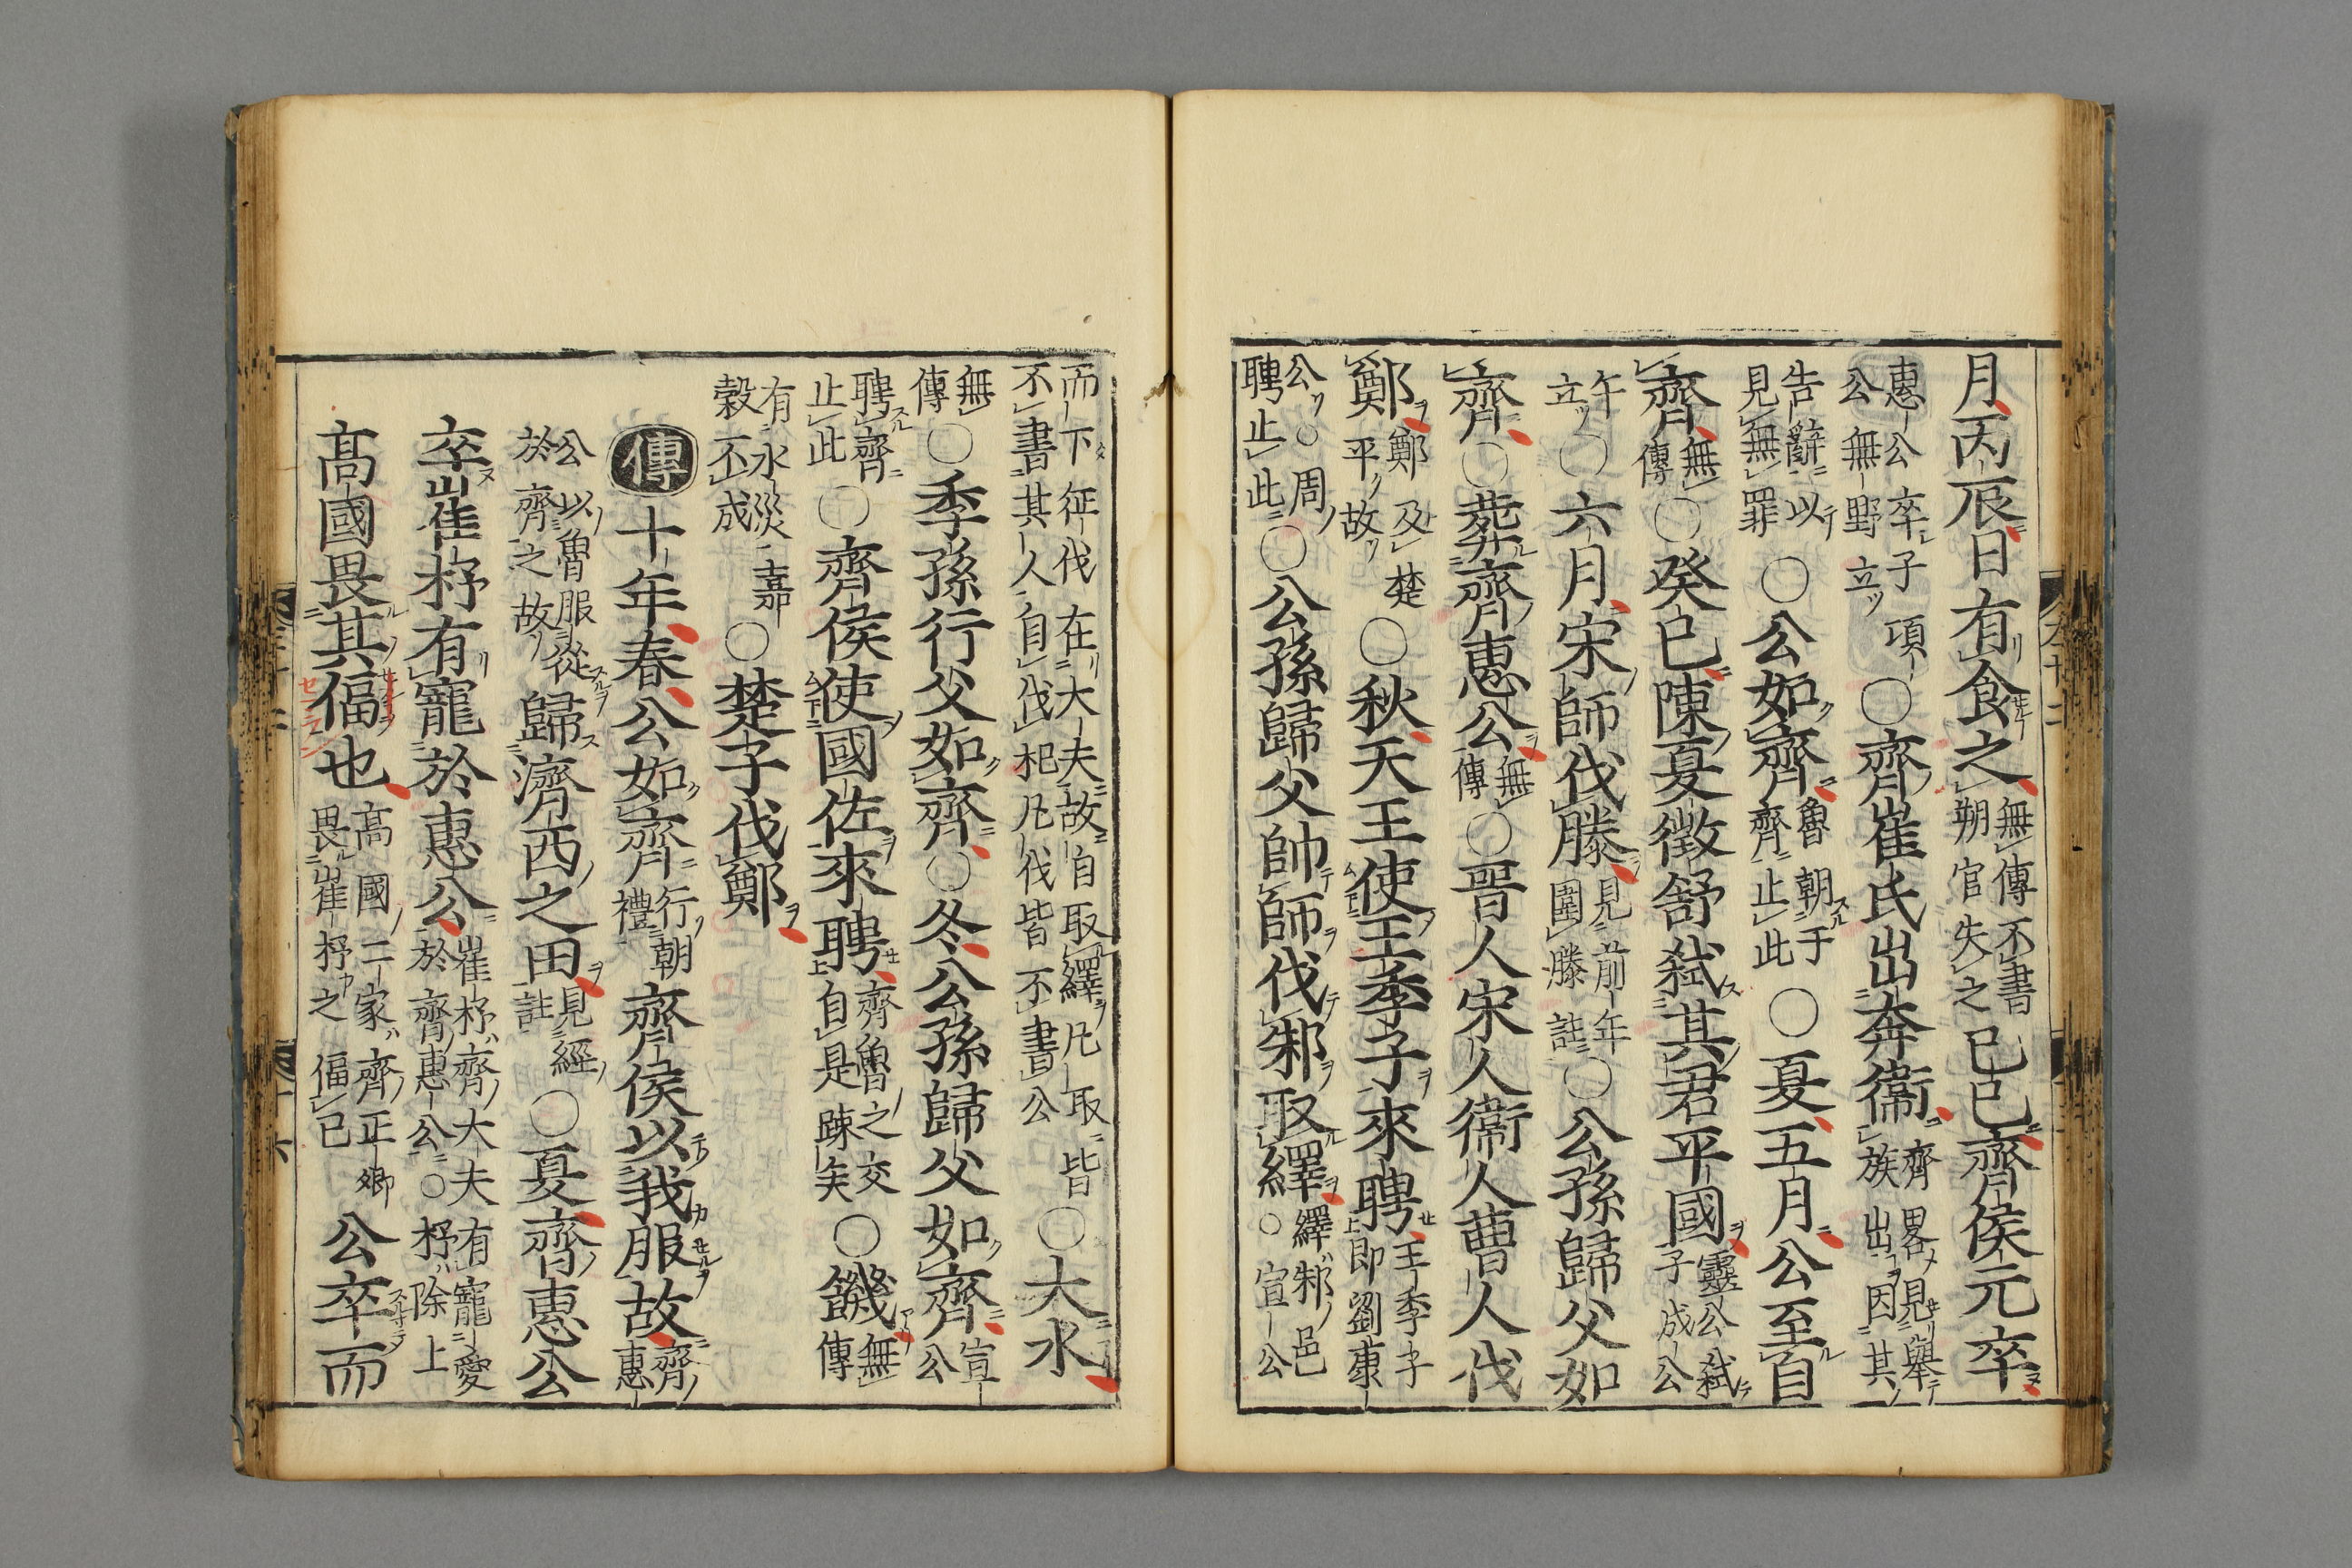 月丙辰日有食之無傳不書朔官失之己巳齊侯元卒
惠公卒子項公無野立○齊崔氏出奔衛齊畧見舉族出因其
告辭以見無罪○公如齊魯朝于齊止此○夏五月公至自
齊無傳○癸巳陳夏徵舒弑其君平國靈公弑子成公
午立○六月宋師伐滕見前年圍滕註○公孫歸父如
齊○葬齊惠公無傳○晉人宋人衛人曹人伐
鄭鄭及楚平故○秋天王使王季子來聘王季子即劉康
公○周聘止此○公孫歸父帥師伐邾取繹繹邾邑○宣公
而下征伐在大夫故自取繹凡取皆不書其人自伐杞凡伐皆不書公○大水
無傳○季孫行父如齊○冬公孫歸父如齊宣公
聘齊止此○齊侯使國佐來聘齊魯之交自是踈矣○饑無傳
有水災嘉穀不成○楚子伐鄭
傳十年春公如齊行朝禮齊侯以我服故齊惠
公以魯服從於齊之故歸濟西之田見經註○夏齊惠公
卒崔杼有寵於惠公崔杼齊大夫有寵愛於齊惠公○杼除上
高國畏其偪也高國二家齊正卿畏崔杼之偪已公卒而